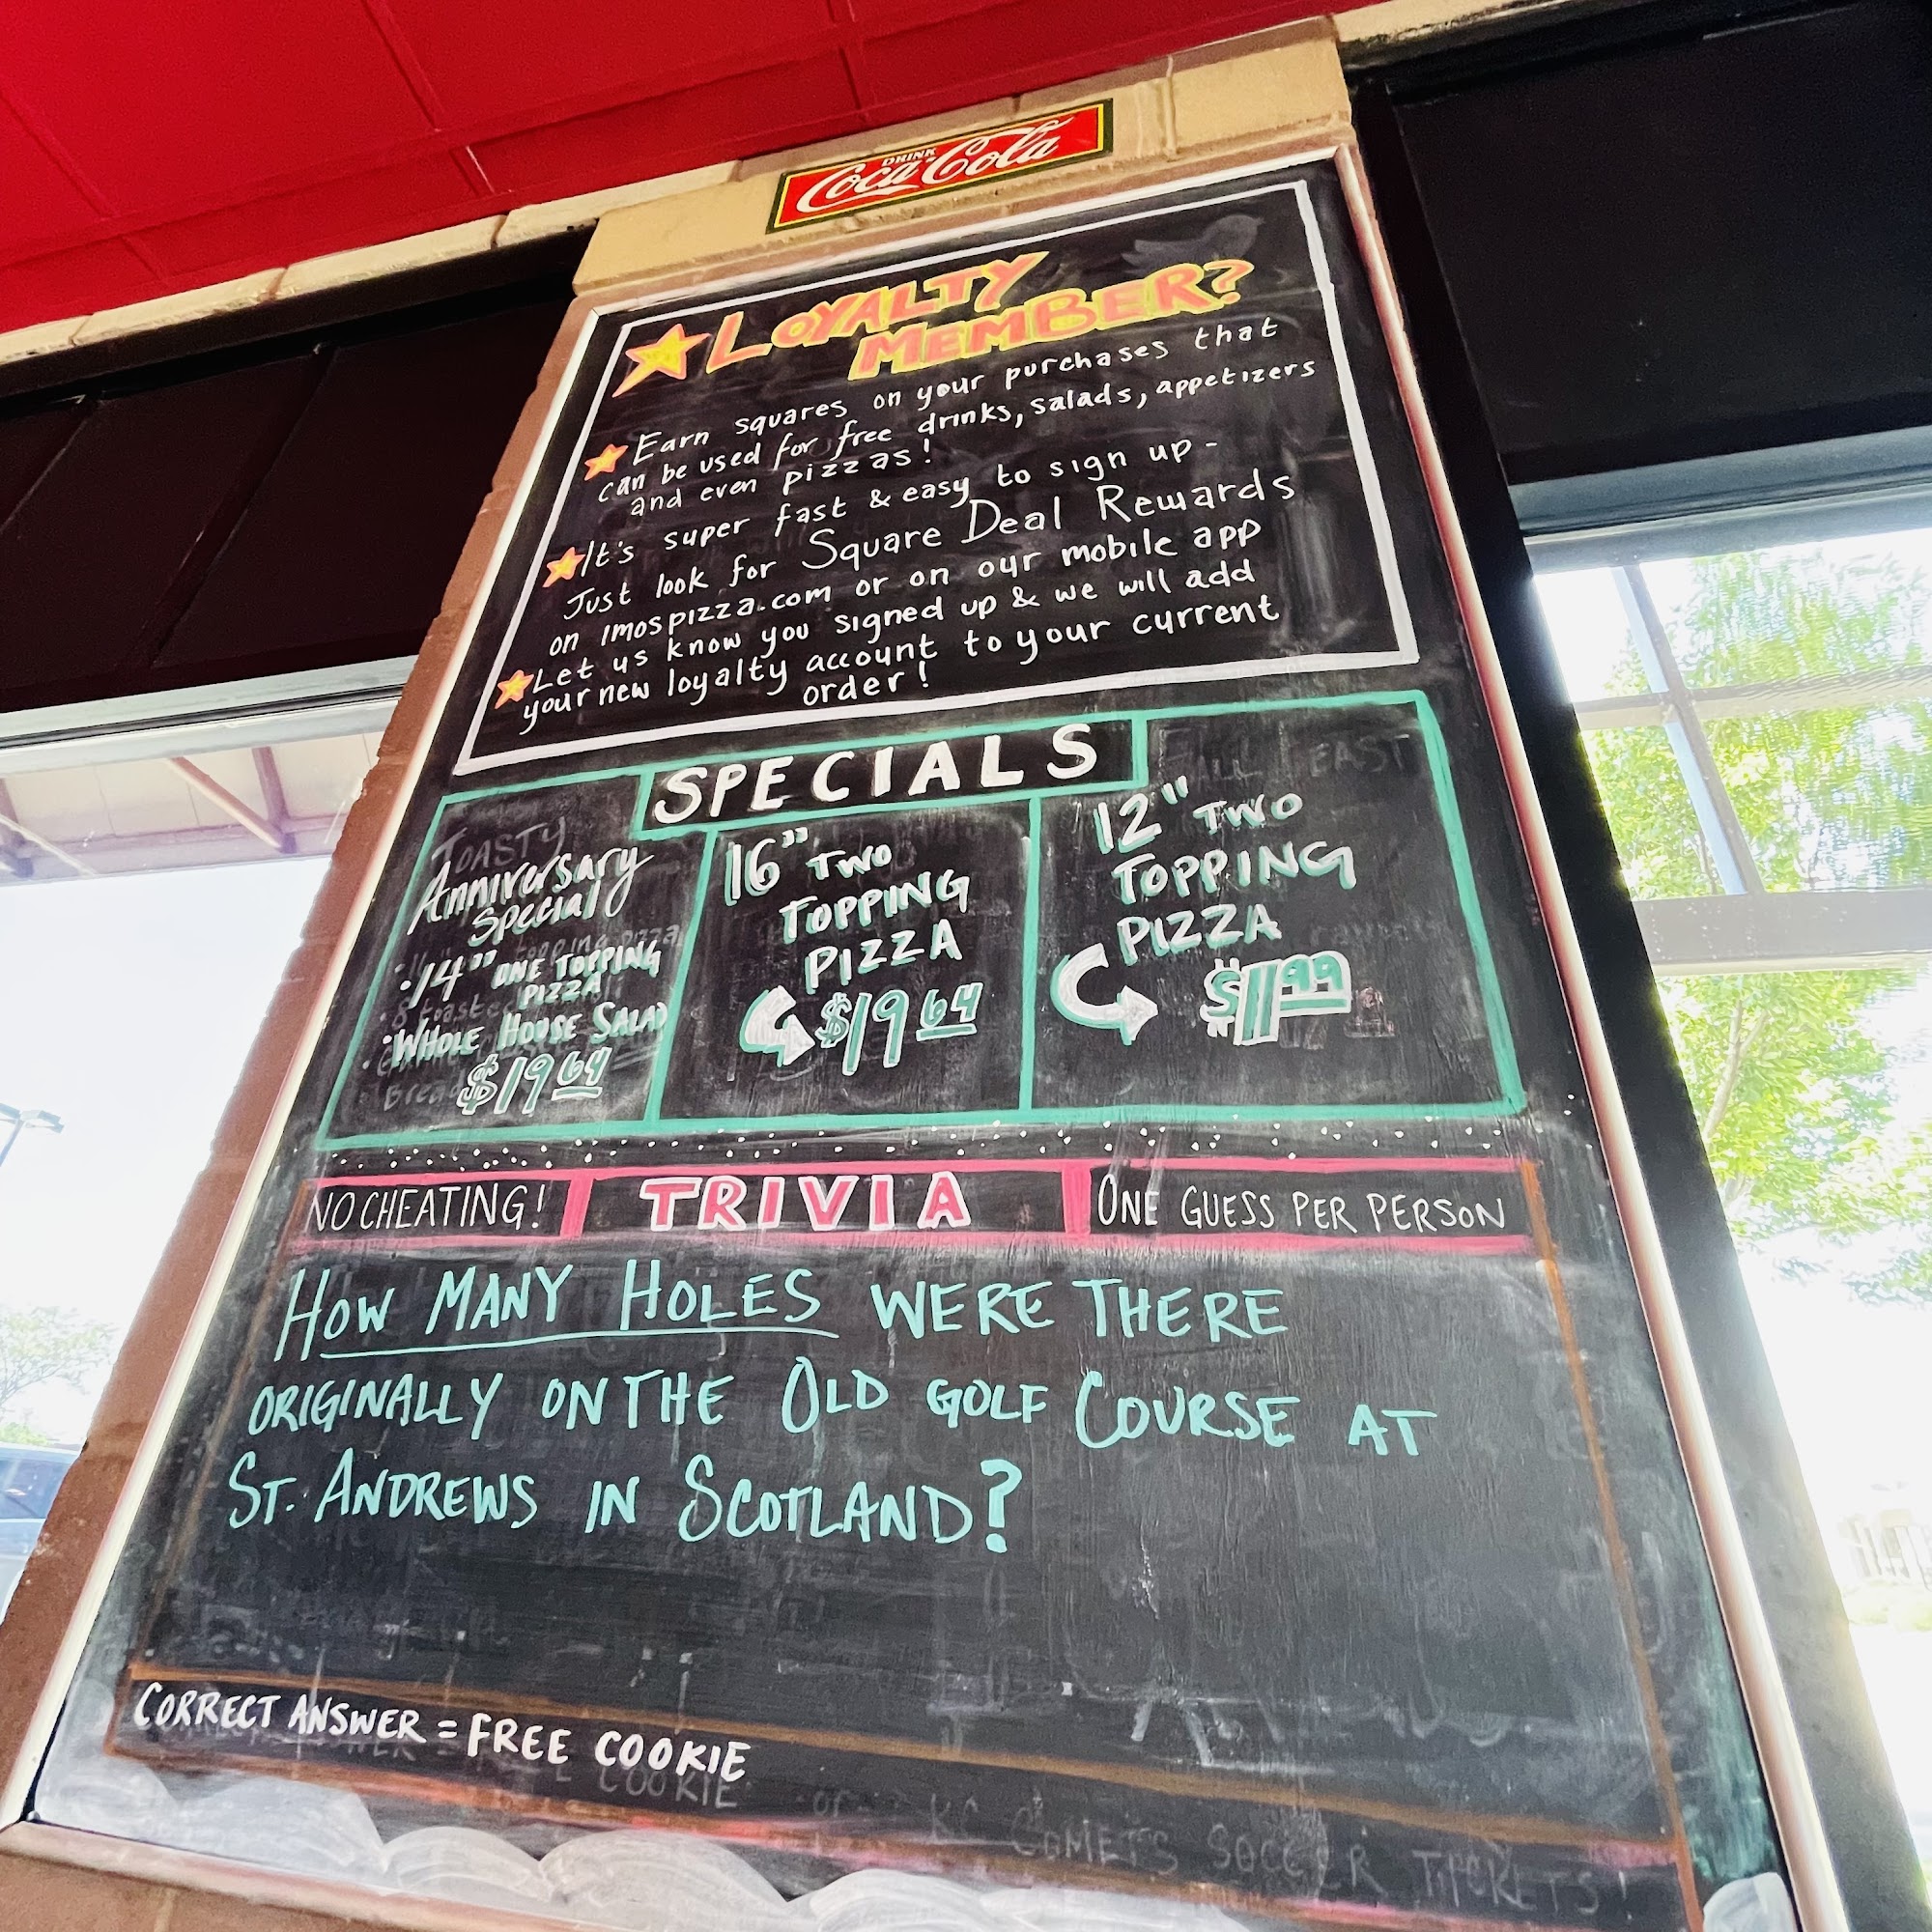 DRINK
Coca-Cola
LOYALTY
MEMBER?
Earn squares on your purchases that
can be used for free drinks, salads, appetizers
and even pizzas!
It's super fast & easy to sign up -
Just look for Square Deal Rewards
on imospizza.com or on our mobile app
Let us know you signed up & we will add
your new loyalty account to your current
order!
SPECIALS
TOASTY
Anniversary
Special
topping pizza
• 14" ONE TOPPING
PIZZA
• WHOLE HOUSE SALAD
$19 64
16" TWO
TOPPING
PIZZA
$19 64
12" TWO
TOPPING
PIZZA
$11 99
NO CHEATING!
TRIVIA
ONE GUESS PER PERSON
HOW MANY HOLES WERE THERE
ORIGINALLY ON THE OLD GOLF COURSE AT
ST. ANDREWS IN SCOTLAND?
CORRECT ANSWER = FREE COOKIE
COOKIE - or - KC COMETS SOCCER TICKETS!